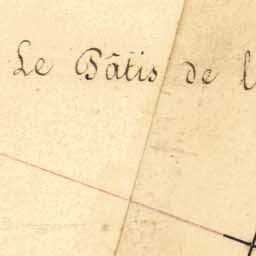 Le Pâtis de l